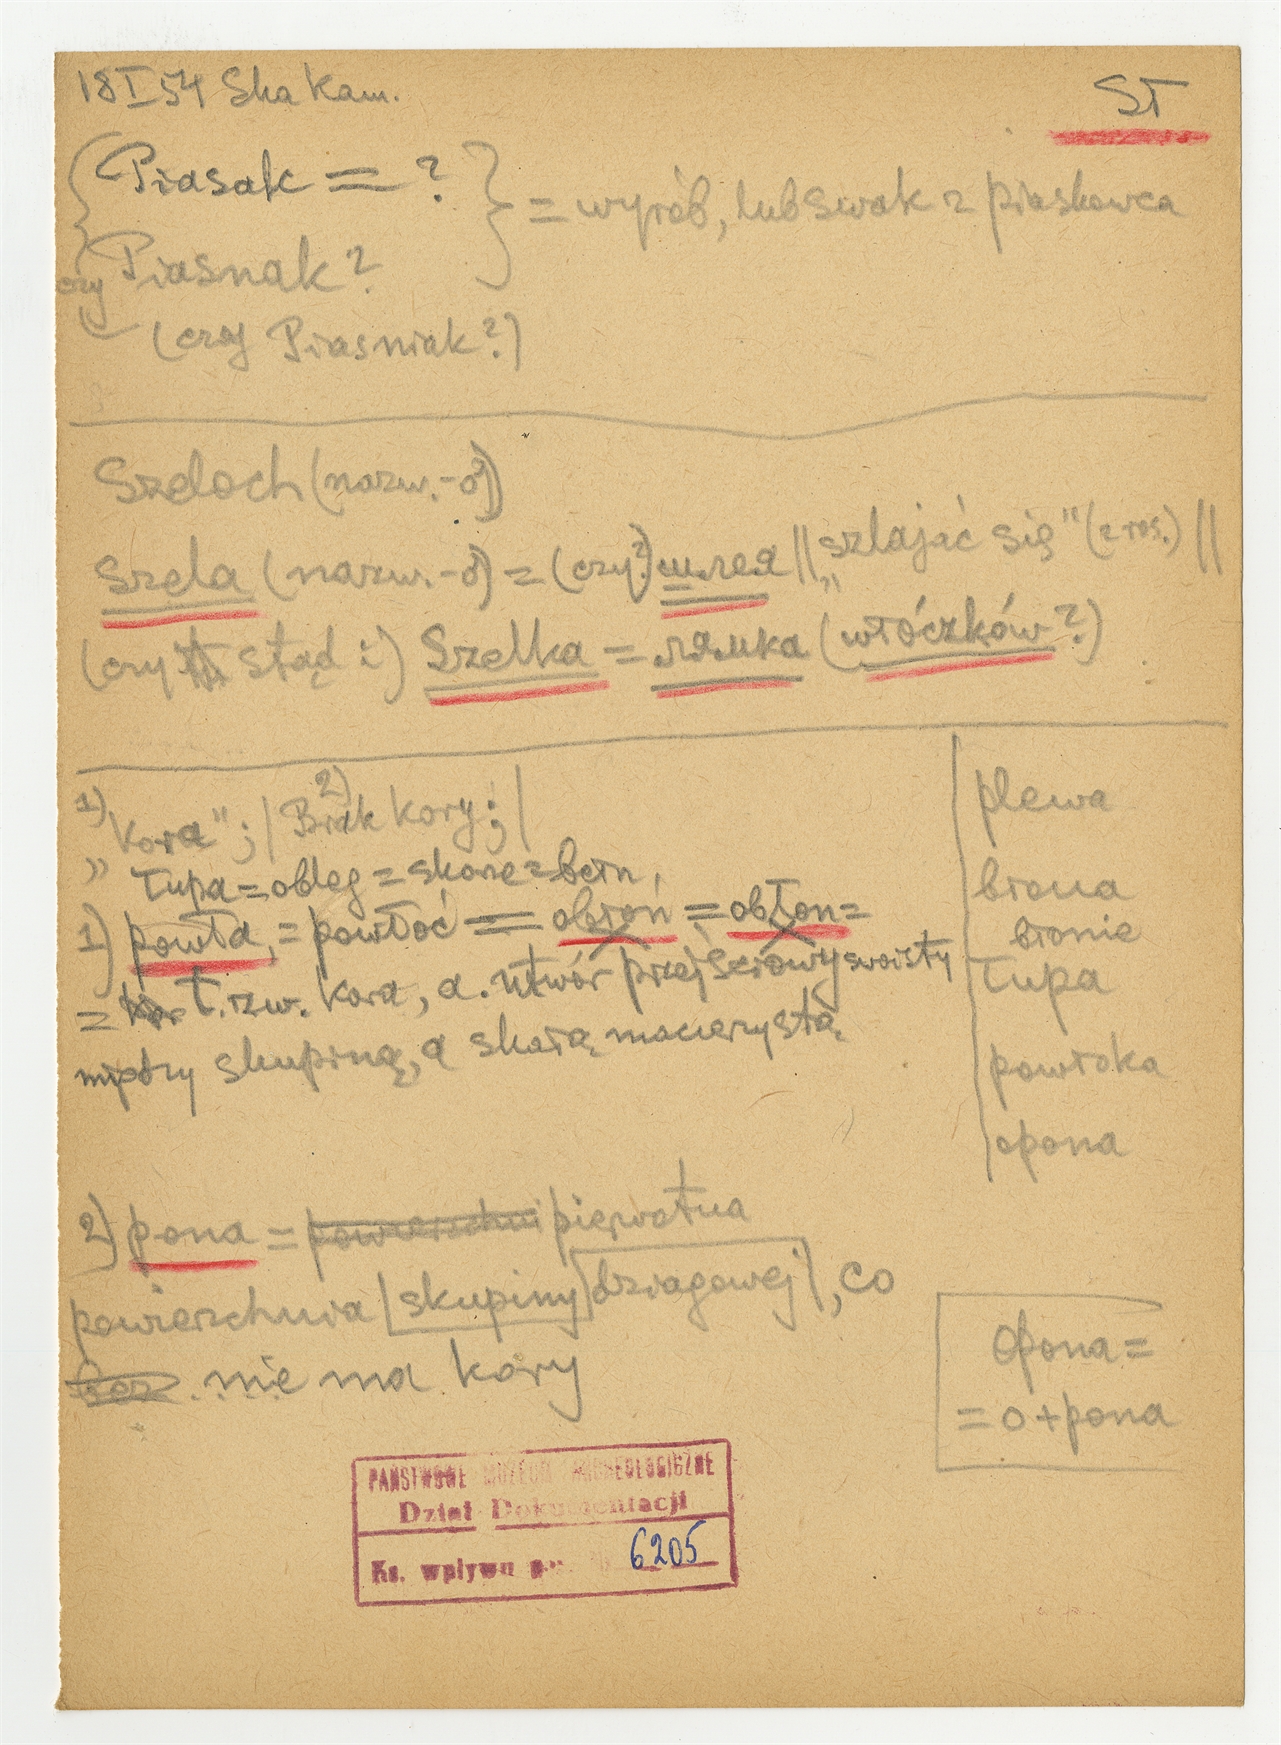 18 I 54 Ska Kam.
ST
Piasak = ?
= wyrób, lub swak z piaskowca
czy Piasnak?
(czy Piasniak?)
Szeloch (nazw. -ő)
szela (nazw. -ő) = (czy?) шлея || „szlajać się" (z ros.) ||
(czy stąd i) Szelka = лямка (włóczków?)
1) „Kora"; | 2) Brak kory; |
Łupa = obleg = skorze = bełn,
1) powła, = powłoć = obłoń = obłon =
= t. zw. kora, a. utwór przejściowy swoisty
między skupiną, a skałą macierzystą
plewa
brona
bronie
Łupa
powłoka
opona
2) pona = powierzchni pierwotna
powierzchnia skupiny dziagowej, co
bez nie ma kory
Opona =
= o + pona
PAŃSTWOWE MUZEUM ARCHEOLOGICZNE
Dział Dokumentacji
Ks. wpływu 6205